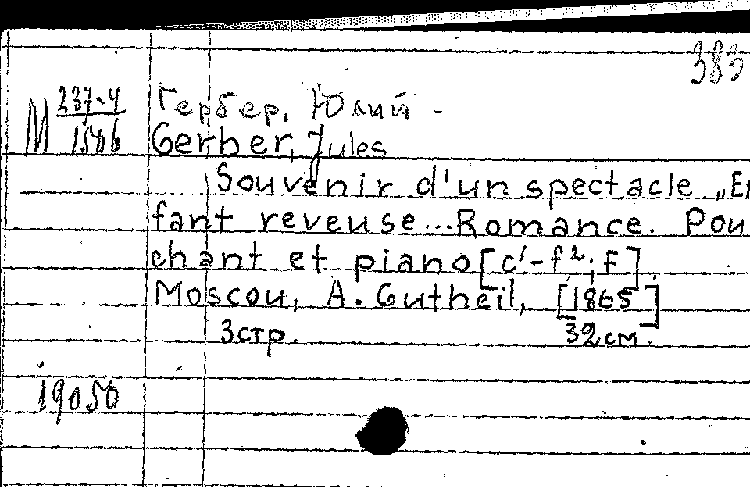 383
М 237-4
1586
Гербер, Юлий -
Gerber, Jules
Souvenir d'un spectacle „En
fant reveuse... Romance. Pou
chant et piano [c¹-f²; F]
Moscou, A. Gutheil, [1865]
3стр. 32см.
19050